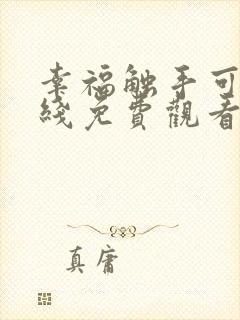 幸福触手可
綫免費觀看
真庸